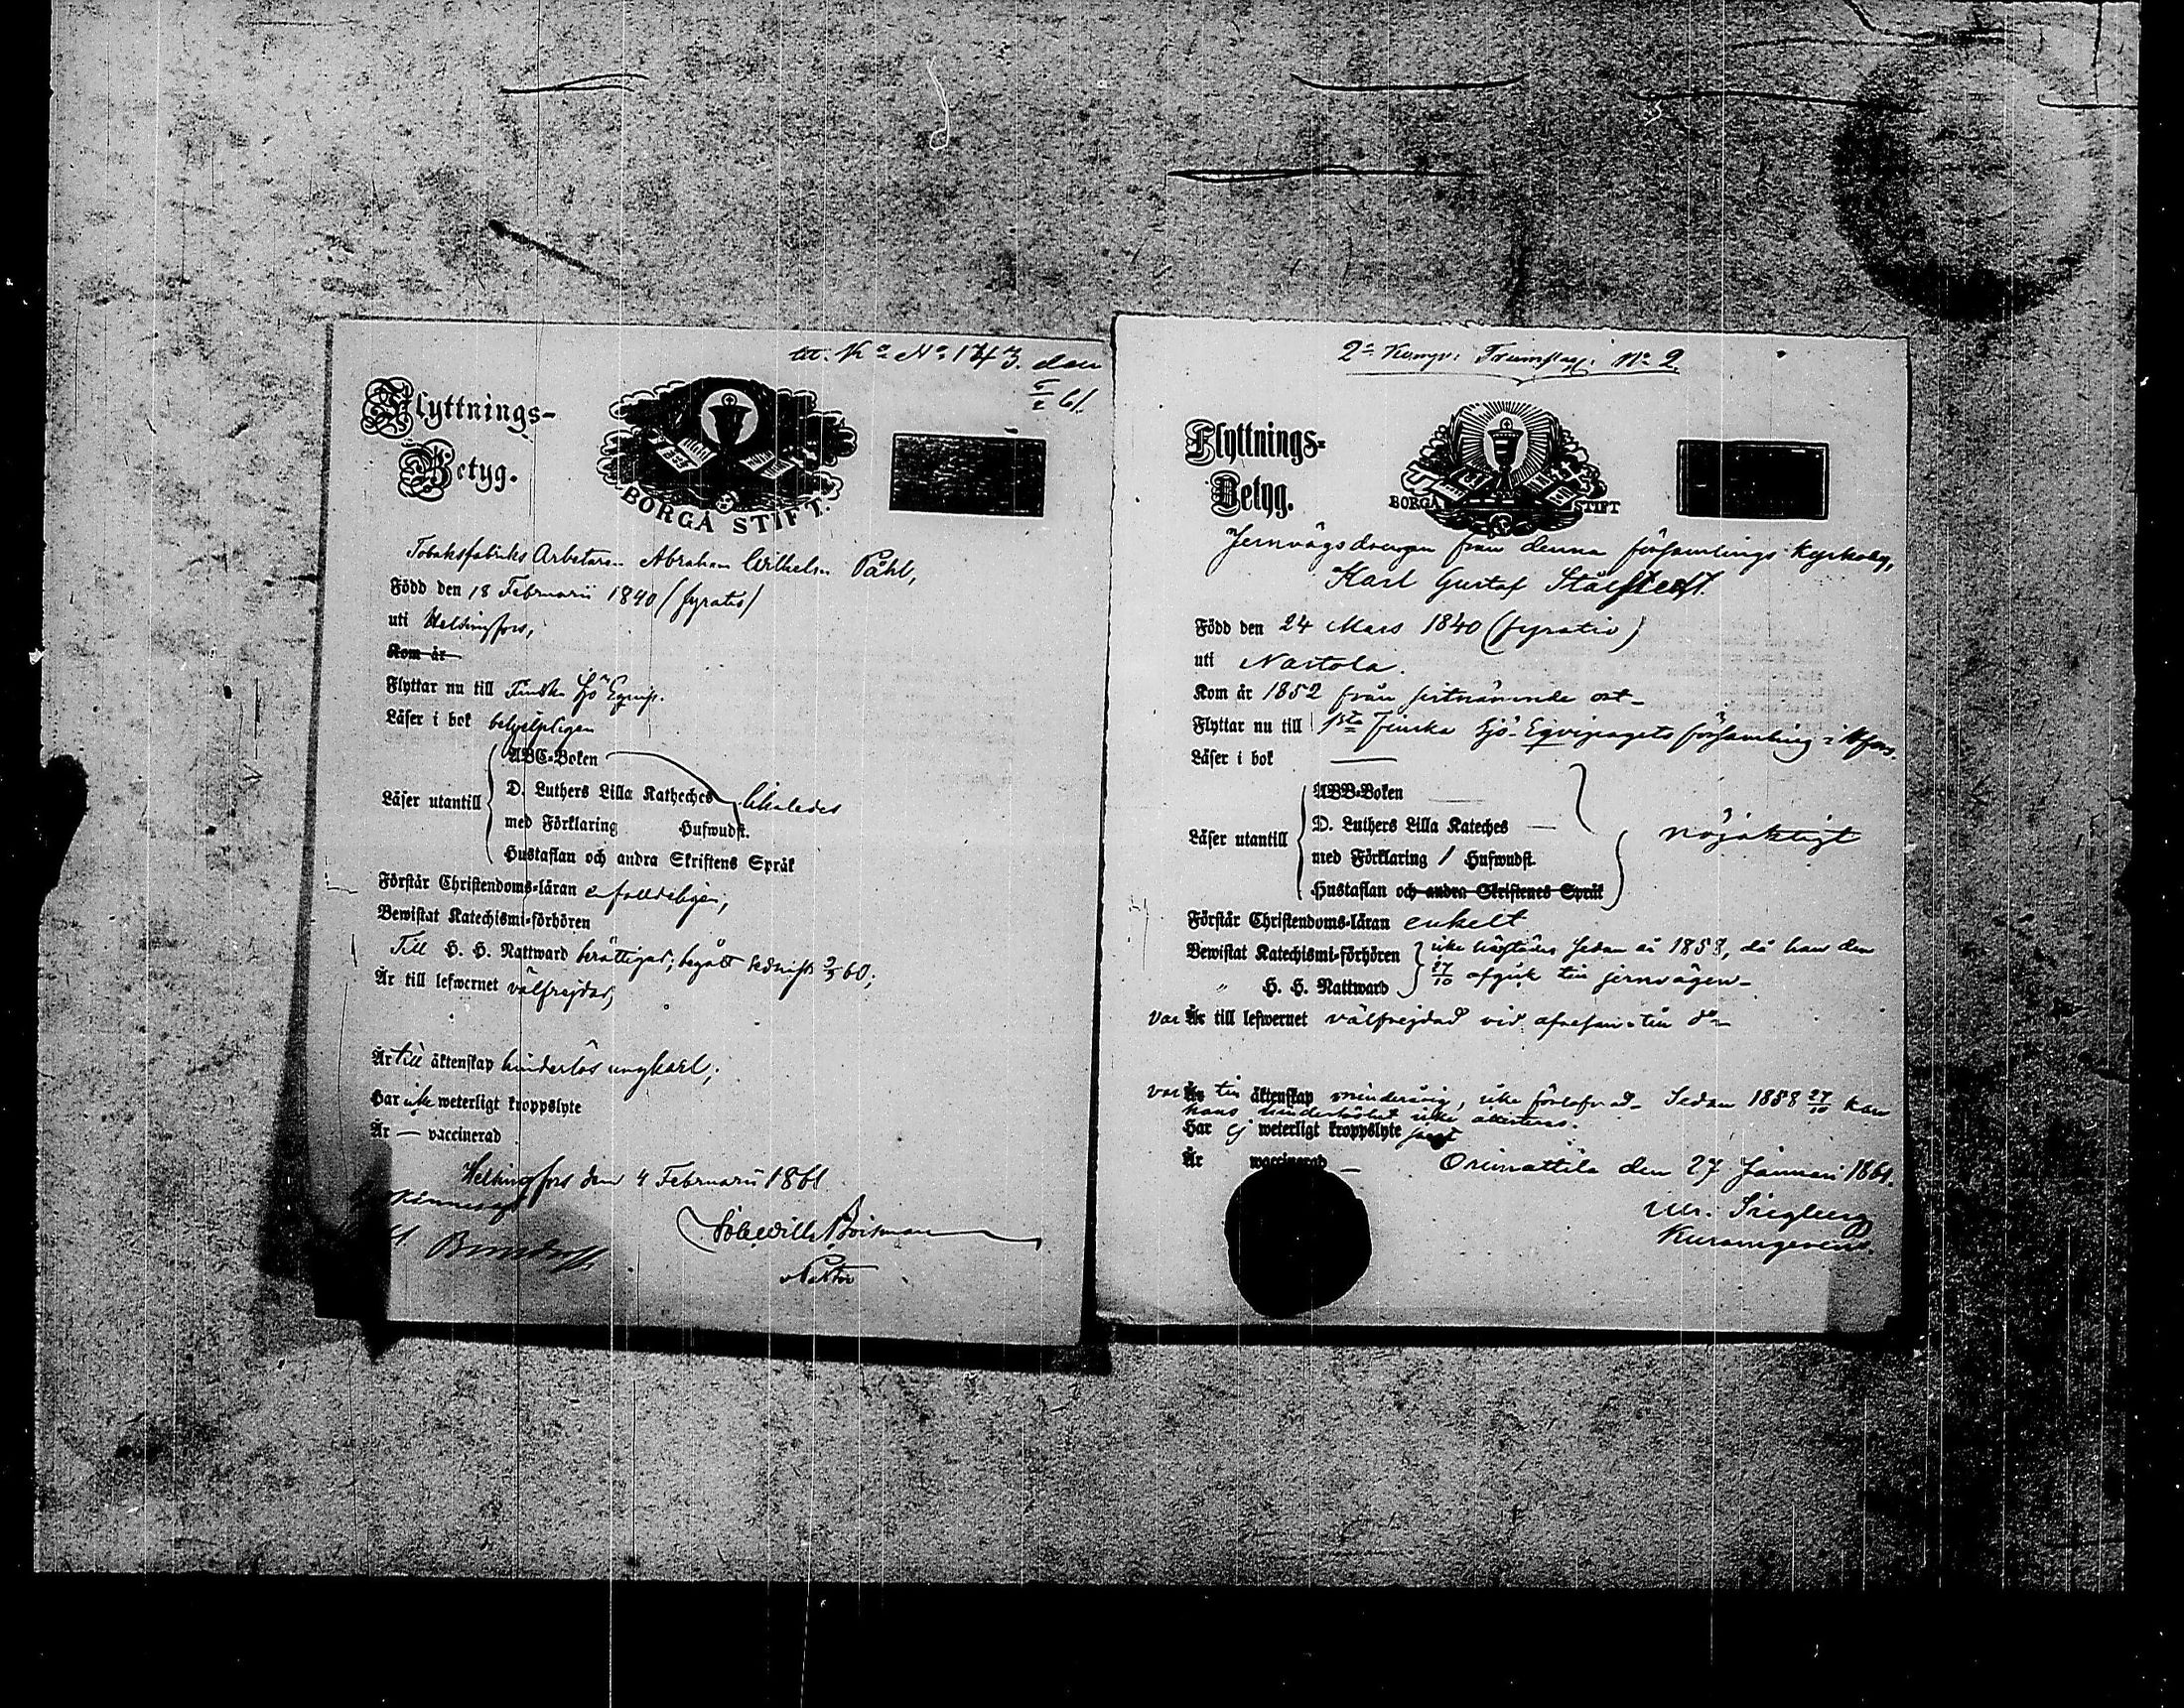 No 143. den
61.
Flyttnings-
Betyg.
BORGÅ STIFT.
Tobaksfabriks Arbetaren Abraham Wilhelm Påhl,
Född den 18 Februarii 1840 (fyratio)
uti Helsingfors,
Kom år
Flyttar nu till Finska Sjö Equip.
Läser i bok behjelpligen
ABC-Boken
Läser utantill D. Luthers Lilla Katheches likaledes
med Förklaring Hufwudst.
Hustaflan och andra Skriftens Språk
Förstår Christendoms-läran enfalldeligen,
Bewistat Katechismi-förhören
Till H. H. Nattward berättigad; begått sednast 2/3 60;
Är till lefwernet välfrejdad,
Är till äktenskap hinderlös ungkarl;
Har icke weterligt kroppslyte
Är — vaccinerad
Helsingfors den 4 Februarii 1861
2a No 2.
Flyttnings-
Betyg.
BORGÅ STIFT
Jernvägsdrengen från denna församlings Kyrkoby,
Karl Gustaf
Född den 24 Mars 1840 (fyratio)
uti Nastola.
Kom år 1852 från sistnämnde ort
Flyttar nu till 1sta Finska Sjö-Eqvipagets församling i Hfors.
Läser i bok —
ABB-Boken
Läser utantill D. Luthers Lilla Kateches — nöjaktigt
med Förklaring / Hufwudst.
Hustaflan och andra Skriftenes Språk
Förstår Christendoms-läran enkelt
Bewistat Katechismi-förhören icke sedan år 1858, då han den
" H. H. Nattward 27/10 afgick till jernvägen
var Är till lefwernet välfrejdad vid afresan till do
var Är till äktenskap minderårig, icke förlofvad. Sedan 1858 27/10 kan
hans hinderlöshet icke attesteras.
Har ej weterligt kroppslyte
Är waccinerad —
Orimattila den 27 Januari 1861.